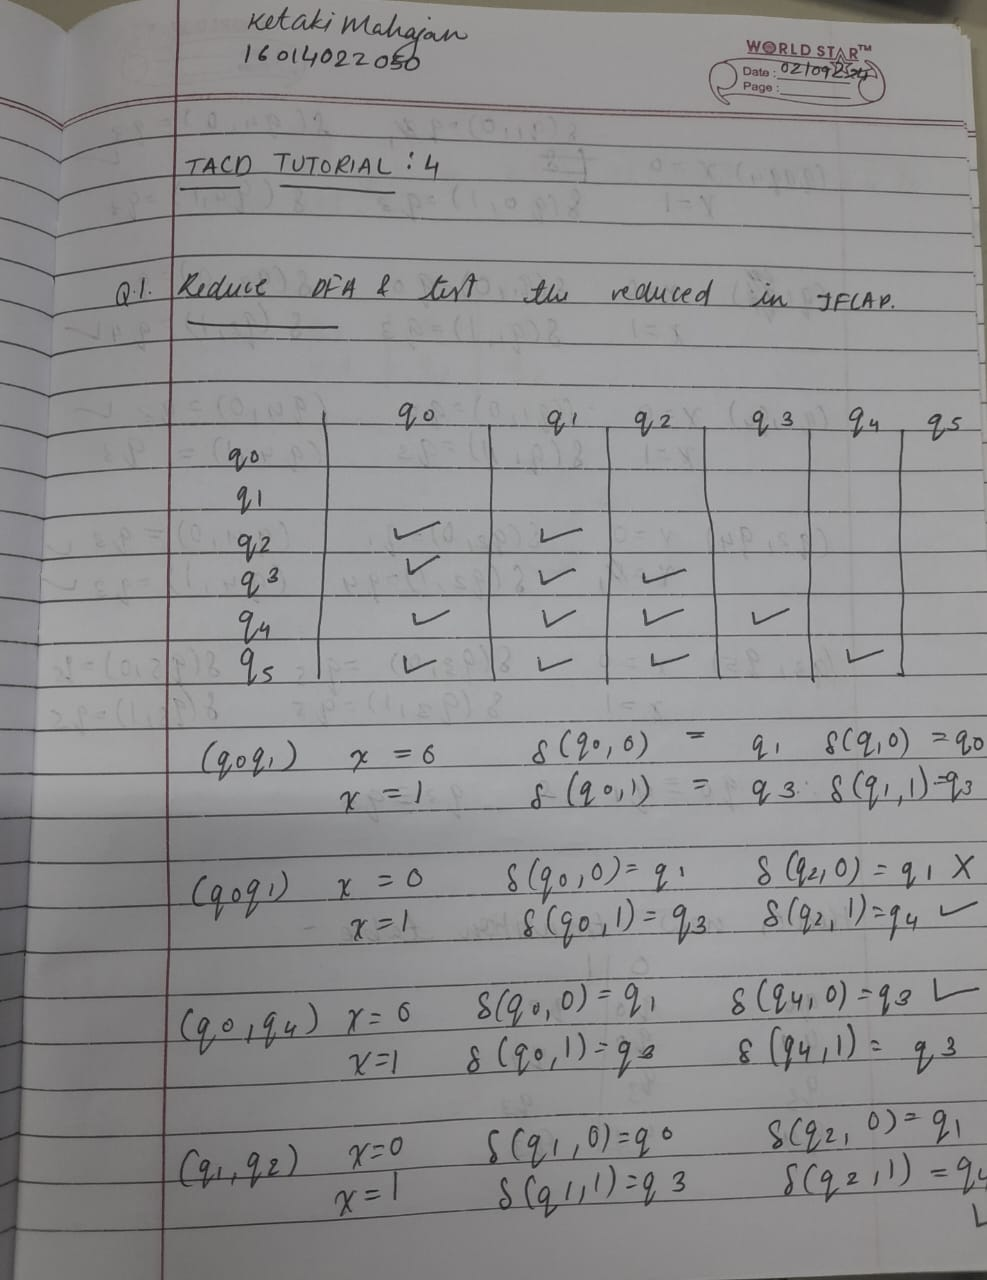 Ketaki Mahajan
16014022050
WORLD STAR™
Date : 02/09/
Page :
TACD TUTORIAL : 4
Q.1. Reduce DFA & test the reduced in JFLAP.
q0 q1 q2 q3 q4 q5
q0
q1
q2 ✓ ✓
q3 ✓ ✓ ✓
q4 ✓ ✓ ✓ ✓
q5 ✓ ✓ ✓ ✓
(q0q1) x = 0 δ(q0,0) = q1 δ(q1,0) = q0
x = 1 δ(q0,1) = q3 δ(q1,1)=q3
(q0q1) x = 0 δ(q0,0)= q1 δ(q2,0)= q1 X
x = 1 δ(q0,1)= q3 δ(q2,1)=q4 ✓
(q0,q4) x=0 δ(q0,0)=q1 δ(q4,0)=q3 ✓
x=1 δ(q0,1)=q3 δ(q4,1)= q3
(q1,q2) x=0 δ(q1,0)=q0 δ(q2,0)=q1
x=1 δ(q1,1)=q3 δ(q2,1)=q4
✓